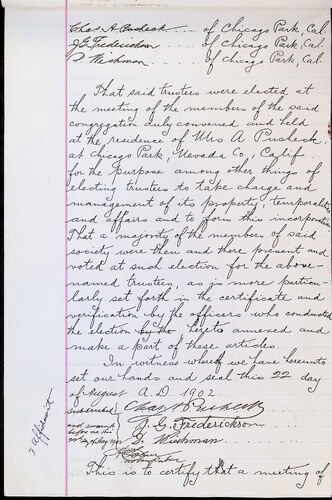 Chas A. Pusheck of Chicago Park, Cal.
J. G. Frederickson of Chicago Park, Cal.
D. Wichman of Chicago Park, Cal
That said trustees were elected at
the meeting of the members of the said
congregation duly convened and held
at the residence of Mrs A Pusheck,
at Chicago Park, Nevada Co, Calif.
for the purpose among other things of
electing trustees to take charge and
management of its property, temporalities
and affairs and to form this incorporation
That a majority of the members of said
society were then and there present and
voted at such election for the above-
named trustees, as is more particu-
larly set forth in the certificate and
verification by the officers who conducted
the election by the hereto annexed and
make a part of these articles.
In witness whereof we have hereunto
set our hands and seal this 22 day
of August A.D. 1902
Subscribed
and sworn to
before me this
day of Aug 1902
Chas A Pusheck
J. G. Frederickson
D. Wichman
This is to certify that a meeting of
Affidavit